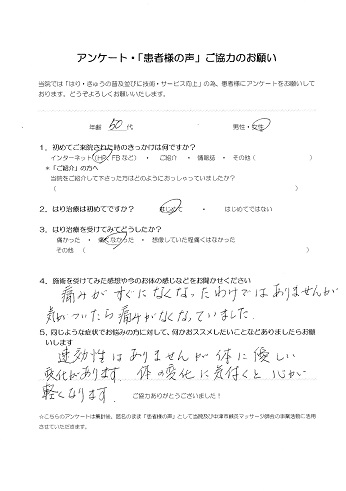 アンケート・「患者様の声」ご協力のお願い
当院では「はり・きゅうの普及並びに技術・サービス向上」の為、患者様にアンケートをお願いして
おります。どうぞよろしくお願いいたします。
年齢 50代 男性・女性
1．初めてご来院された時のきっかけは何ですか？
インターネット（HP、FBなど） ・ ご紹介 ・ 情報誌 ・ その他（ ）
＊「ご紹介」の方へ
当院をご紹介して下さった方はどのようにおっしゃっていましたか？
（ ）
2．はり治療は初めてですか？ はじめて ・ はじめてではない
3．はり治療を受けてみてどうしたか？
痛かった ・ 痛くなかった ・ 想像していた程痛くはなかった
その他（ ）
4．施術を受けてみた感想や今のお体の感じなどをお聞かせください
痛みがすぐになくなったわけではありませんが
気がついたら痛みがなくなっていました.
5．同じような症状でお悩みの方に対して、何かおススメしたいことなどありましたらお願
いします
速効性はありませんが体に優しい
変化があります. 体の変化に気付くと心が
軽くなります.
ご協力ありがとうございました！
☆こちらのアンケートは集計後、匿名のまま「患者様の声」として当院及び中津市鍼灸マッサージ師会の事業活動に活用
させていただきます。